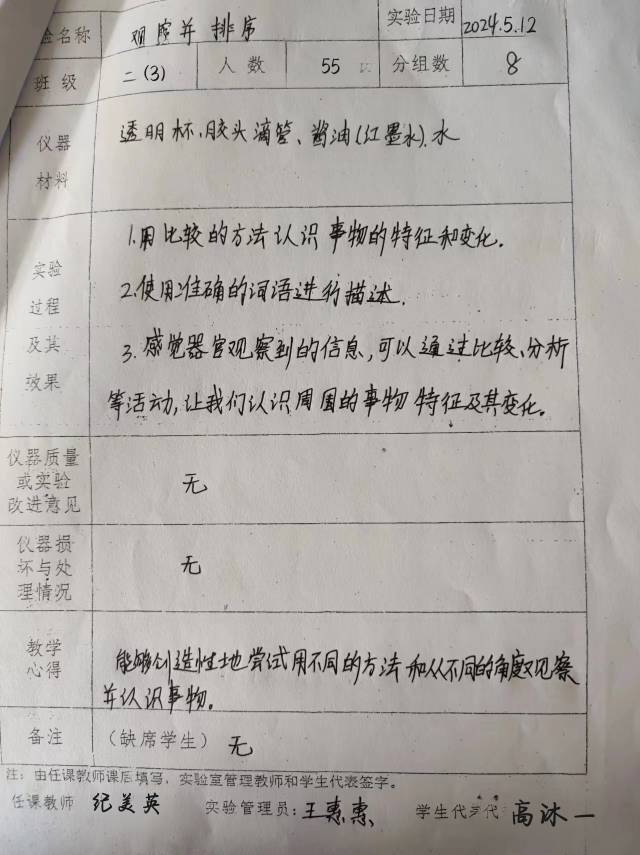 验名称 观察并排序 实验日期 2024.5.12
班级 二(3) 人数 55 分组数 8
仪器
材料
透明杯、胶头滴管、酱油(红墨水)、水
实验
过程
及其
效果
1.用比较的方法认识事物的特征和变化.
2.使用准确的词语进行描述.
3.感觉器官观察到的信息,可以通过比较、分析
等活动,让我们认识周围的事物特征及其变化。
仪器质量
或实验
改进意见
无
仪器损
坏与处
理情况
无
教学
心得
能够创造性地尝试用不同的方法和从不同的角度观察
并认识事物。
备注 (缺席学生) 无
注:由任课教师课后填写,实验室管理教师和学生代表签字。
任课教师 纪美英 实验管理员:王惠惠 学生代表 高沐一